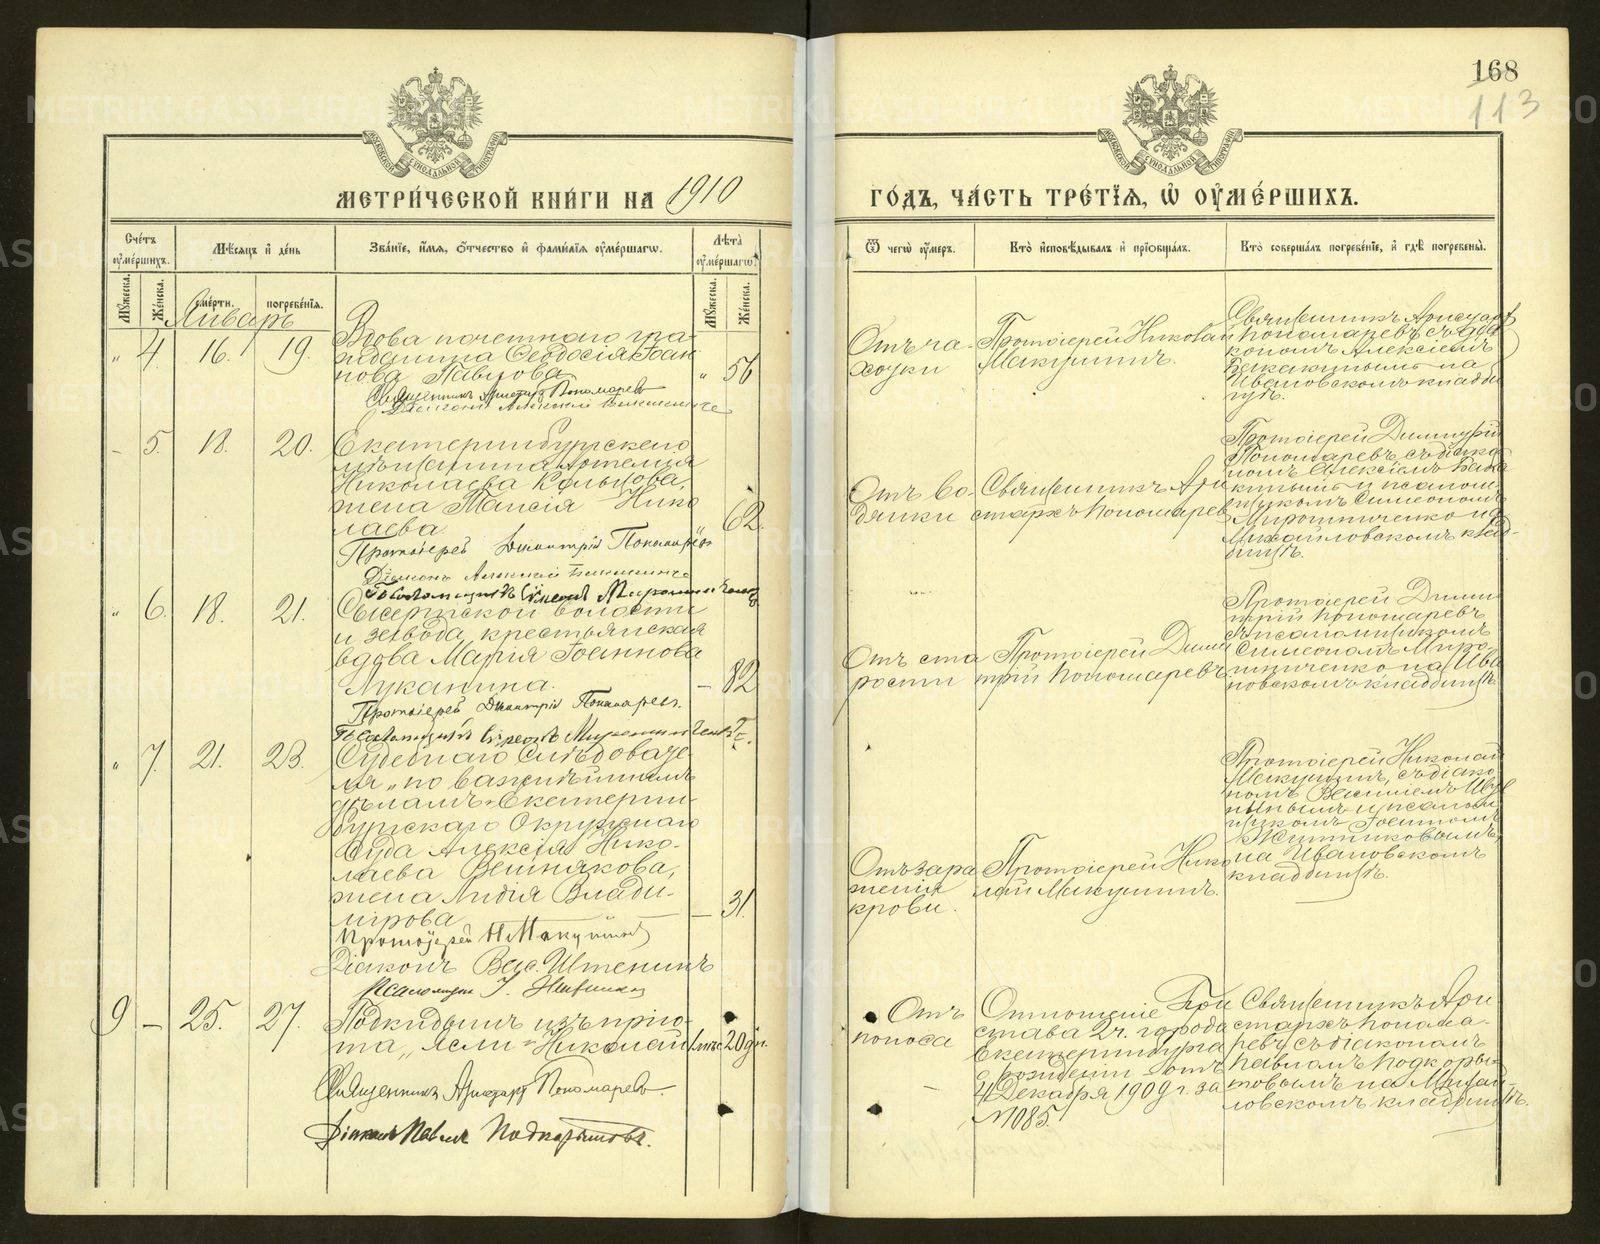 168
113
МЕТРИ́ЧЕСКОЙ КНИ́ГИ НА 1910
ГО́ДЪ, ЧА́СТЬ ТРЕ́ТІѦ, Ѡ ОУМЕ́РШИХЪ.
Сче́тъ оуме́ршихъ.
Мѣ́сяцъ и де́нь
Зва́ніе, и́мя, о́тчество и фами́лія оуме́ршагѡ.
Лѣ́та оуме́ршагѡ.
Ѿ чегѡ̀ оу́меръ.
Кто̀ исповѣ́дывалъ и пріобща́лъ.
Кто̀ соверша́лъ погребе́ніе, и гдѣ̀ погребены̀.
Мꙋ́жеска.
Же́нска.
сме́рти.
погребе́нія.
Мꙋ́жеска.
Же́нска.
Январь
„ 4. 16. 19.
Вдова почетнаго гра-
жданина Ѳеодосія Іоан
нова Павлова
„ 56
Священникъ Аристархъ Пономаревъ
Діаконъ Алексій
Отъ ча-
хотки
Протоіерей Николай
Макушинъ.
Священникъ Аристарх
Пономаревъ съ діа
кономъ Алексіемъ
на
Ивановскомъ кладби
щѣ.
– 5. 18. 20.
Екатеринбургскаго
мѣщанина Артемія
Николаева Кольцова,
жена Таисія Нико
лаева
„ 62.
Протоіерей Димитрій Пономаревъ
Діаконъ Алексій
Псаломщикъ Сімеонъ Мирошниченко
Отъ во-
дянки
Священникъ Ари
стархъ Пономарев
Протоіерей Димитрій
Пономаревъ съ діако
номъ Алексіемъ
и псалом-
щикомъ Симеономъ
Мирошниченко на
Михайловскомъ клад-
бищѣ.
„ 6. 18. 21.
Сысертской волости
и завода, крестьянская
вдова Марія Іоаннова
Луканина.
– 82
Протоіерей Димитрій Пономаревъ.
Псаломщикъ Сімеонъ Мирошниченко.
Отъ ста
рости
Протоіерей Дими
трій Пономаревъ.
Протоіерей Дими
трій Пономаревъ
съ псаломщикомъ
Симеономъ Миро-
шниченко на Ива
новскомъ кладбищѣ
„ 7. 21. 23.
Судебнаго Слѣдовате
ля „по важнѣйшимъ
дѣламъ" Екатерин-
бургскаго Окружнаго
Суда Алексія Нико-
лаева Вешнякова,
жена Лидія Влади-
мірова
– 31.
Протоіерей Н Макушинъ
Діаконъ Вас. Ившенинъ
Псаломщик І.
Отъ зара
женія
крови.
Протоіерей Нико
лай Макушинъ.
Протоіерей Николай
Макушинъ, съ діако
номъ Василіемъ
и псалом
щикомъ Іоанномъ
на Ивановскомъ
кладбищѣ.
9 – 25. 27.
Подкидышъ изъ прію-
та „Ясли" Николай
1 мѣс 20 дн.
Священникъ Аристархъ Пономаревъ.
Діаконъ Павелъ Подкорытовъ.
Отъ
поноса
Отношеніе При
става 2 ч. города
Екатеринбурга
отъ
4 Декабря 1909 г. за
№ 1085.
Священникъ Ари-
стархъ Понома-
ревъ съ діакономъ
Павломъ Подкоры-
товымъ на Михай-
ловскомъ кладбищѣ.
METRIKI.GASO-URAL.RU